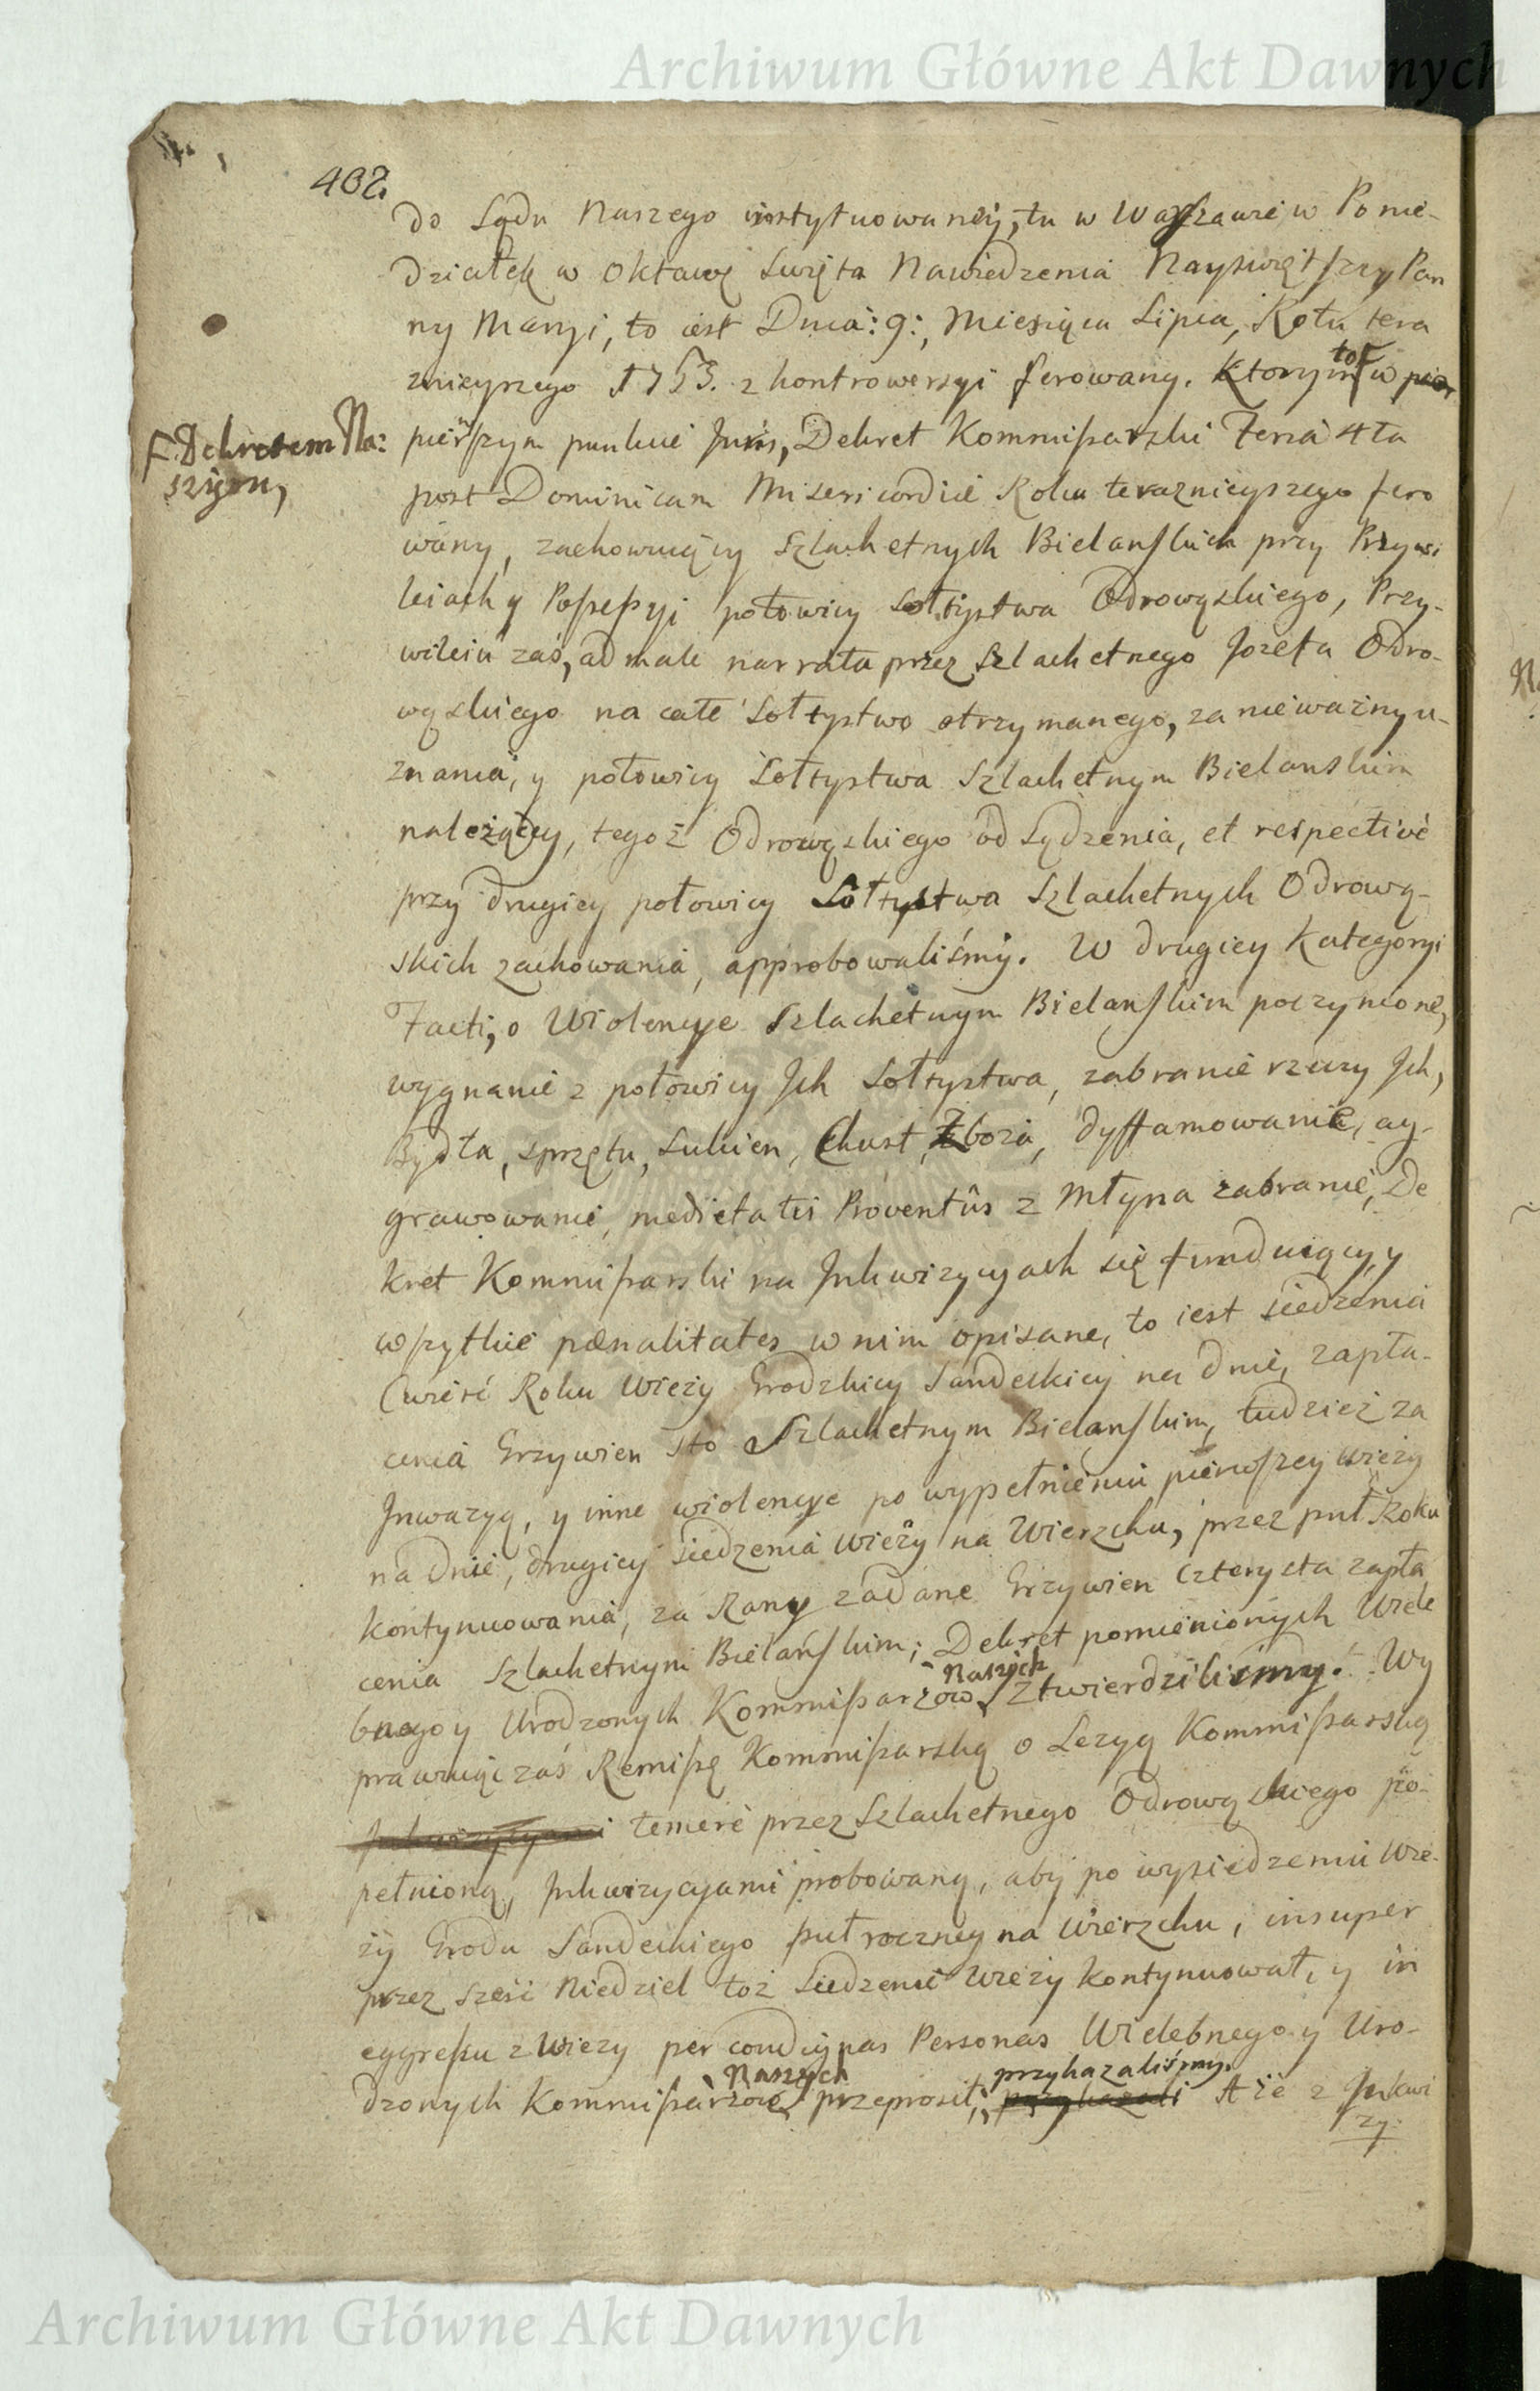 Archiwum Główne Akt Dawnych
402.
do Sądu Naszego instytuowaney, tu w Warszawie w Ponie-
działek w Oktawę Swięta Nawiedzenia Nayswiętszey Pan
ny Maryi, to iest Dnia: 9:, Miesiąca Lipca, Roku tera
znieyszego 1753. z kontrowersyi ferowany. Ktorym
toż w pier
F. Dekretem Na:
szym,
pierszym punkcie Juris, Dekret Kommissarski Feria 4ta
post Dominicam Misericordiæ Roku teraznieyszego fero
wany, zachowuiący Szlachetnych Bielanskich przy Przywi
leiach y Possessyi połowicy Sołtystwa Odrowąskiego, Przy-
wileiu zaś, ad male narrata przez Szlachetnego Jozefa Odro-
wąskiego na całe Sołtystwo otrzymanego, za nieważny u-
znania, y połowicy Sołtystwa Szlachetnym Bielanskim
należącey, tegoż Odrowąskiego odsądzenia, et respectivè
przy drugiey połowicy Sołtystwa Szlachetnych Odrową-
skich zachowania, approbowaliśmy. W drugiey Kategoryi
Facti, o Wiolencye Szlachetnym Bielanskim poczynione,
wygnanie z połowicy Jch Sołtystwa, zabranie rzeczy Jch,
Bydła, sprzętu, Sukien, Chust, Zboża, dyffamowanie, ag-
grawowanie, medietatis Proventûs z Młyna zabranie, De
kret Kommissarski na Jnkwizycyach się funduiący, y
wszytkie pœnalitates w nim opisane, to iest siedzenia
Cwierć Roku Wieży Grodzkiey Sandeckiey na dnie, zapła-
cenia Grzywien sto Szlachetnym Bielanskim, tudzież za
Jnwazyą, y inne wiolencye po wypełnieniu pierwszey wieży
na dnie, drugiey siedzenia wieży na Wierzchu, przez puł Roku
kontynuowania, za Rany zadane Grzywien Czterysta zapła
cenia Szlachetnym Bielańskim; Dekret pomienionych Wiele
bnego y Urodzonych Kommissarzow Naszych ztwierdziliśmy. Wy
prawuiąc zaś Remissę Kommissarską o Lezyą Kommissarską
temerè przez Szlachetnego Odrowąskiego po-
pełnioną, Jnkwizycyami probowaną, aby po wysiedzeniu Wie-
ży Grodu Sandeckiego pułroczney na Wierzchu, insuper
przez sześć Niedziel toż Siedzenie Wieży kontynuował, y in
egressu z Wieży per condignas Personas Wielebnego y Uro-
dzonych Kommissarzow Naszych przeprosił; przykazali przykazaliśmy. A że z Jnkwi
zy:
Archiwum Główne Akt Dawnych